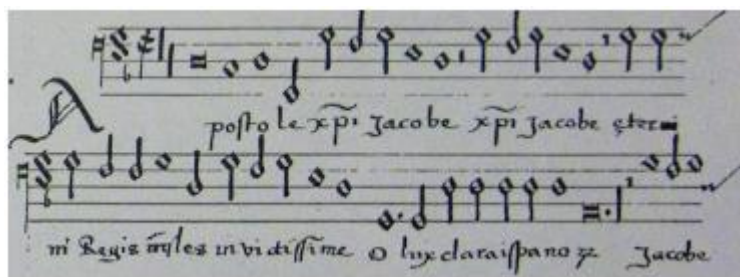 A posto le xp̃i Jacobe xp̃i Jacobe ęter
ni Regis m̃yles in vi dissime o lux clara ispano ꝝ Jacobe